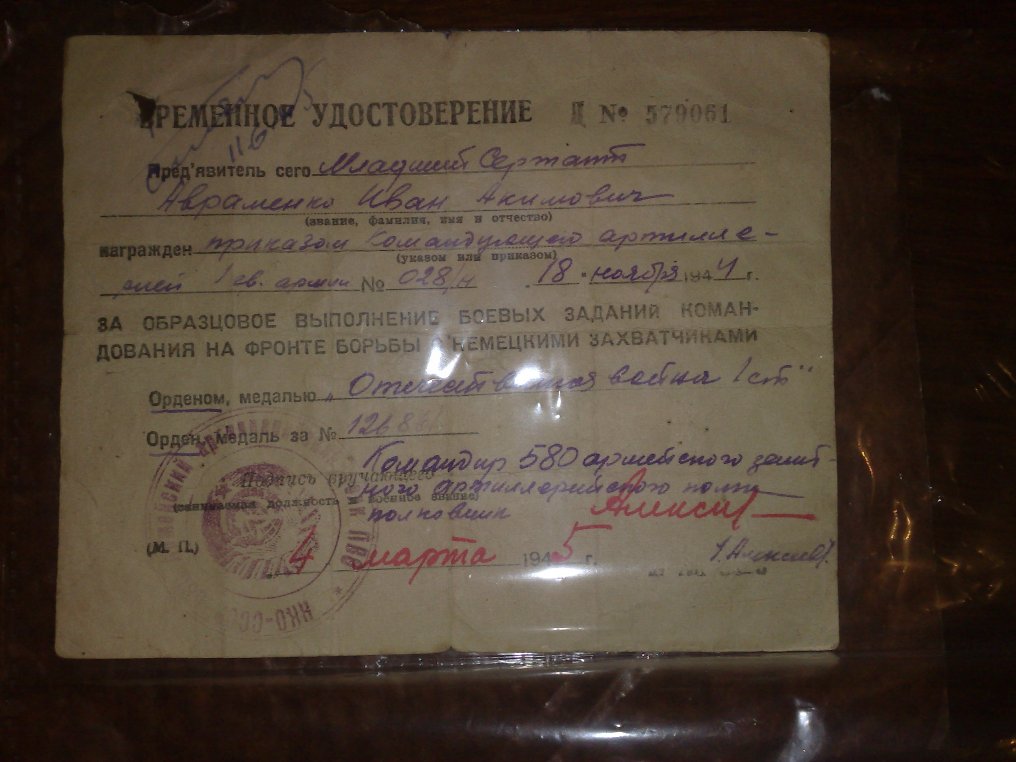 116
ВРЕМЕННОЕ УДОСТОВЕРЕНИЕ Д № 579061
Пред'явитель сего Младший Сержант
Авраменко Иван Акимович
(звание, фамилия, имя и отчество)
награжден приказом Командующего артиллие-
(указом или приказом)
рией 1 гв. армии № 028/н 18 ноября 1944 г.
ЗА ОБРАЗЦОВОЕ ВЫПОЛНЕНИЕ БОЕВЫХ ЗАДАНИЙ КОМАН-
ДОВАНИЯ НА ФРОНТЕ БОРЬБЫ С НЕМЕЦКИМИ ЗАХВАТЧИКАМИ
Орденом, медалью „Отечественная война 1 ст"
Орден, медаль за №
Командир 580 армейского зенит
Подпись вручающего
ного артиллерийского полка
(занимаемая должность и военное звание)
полковник
(М. П.) 4 марта 1945 г.
НКО-СССР